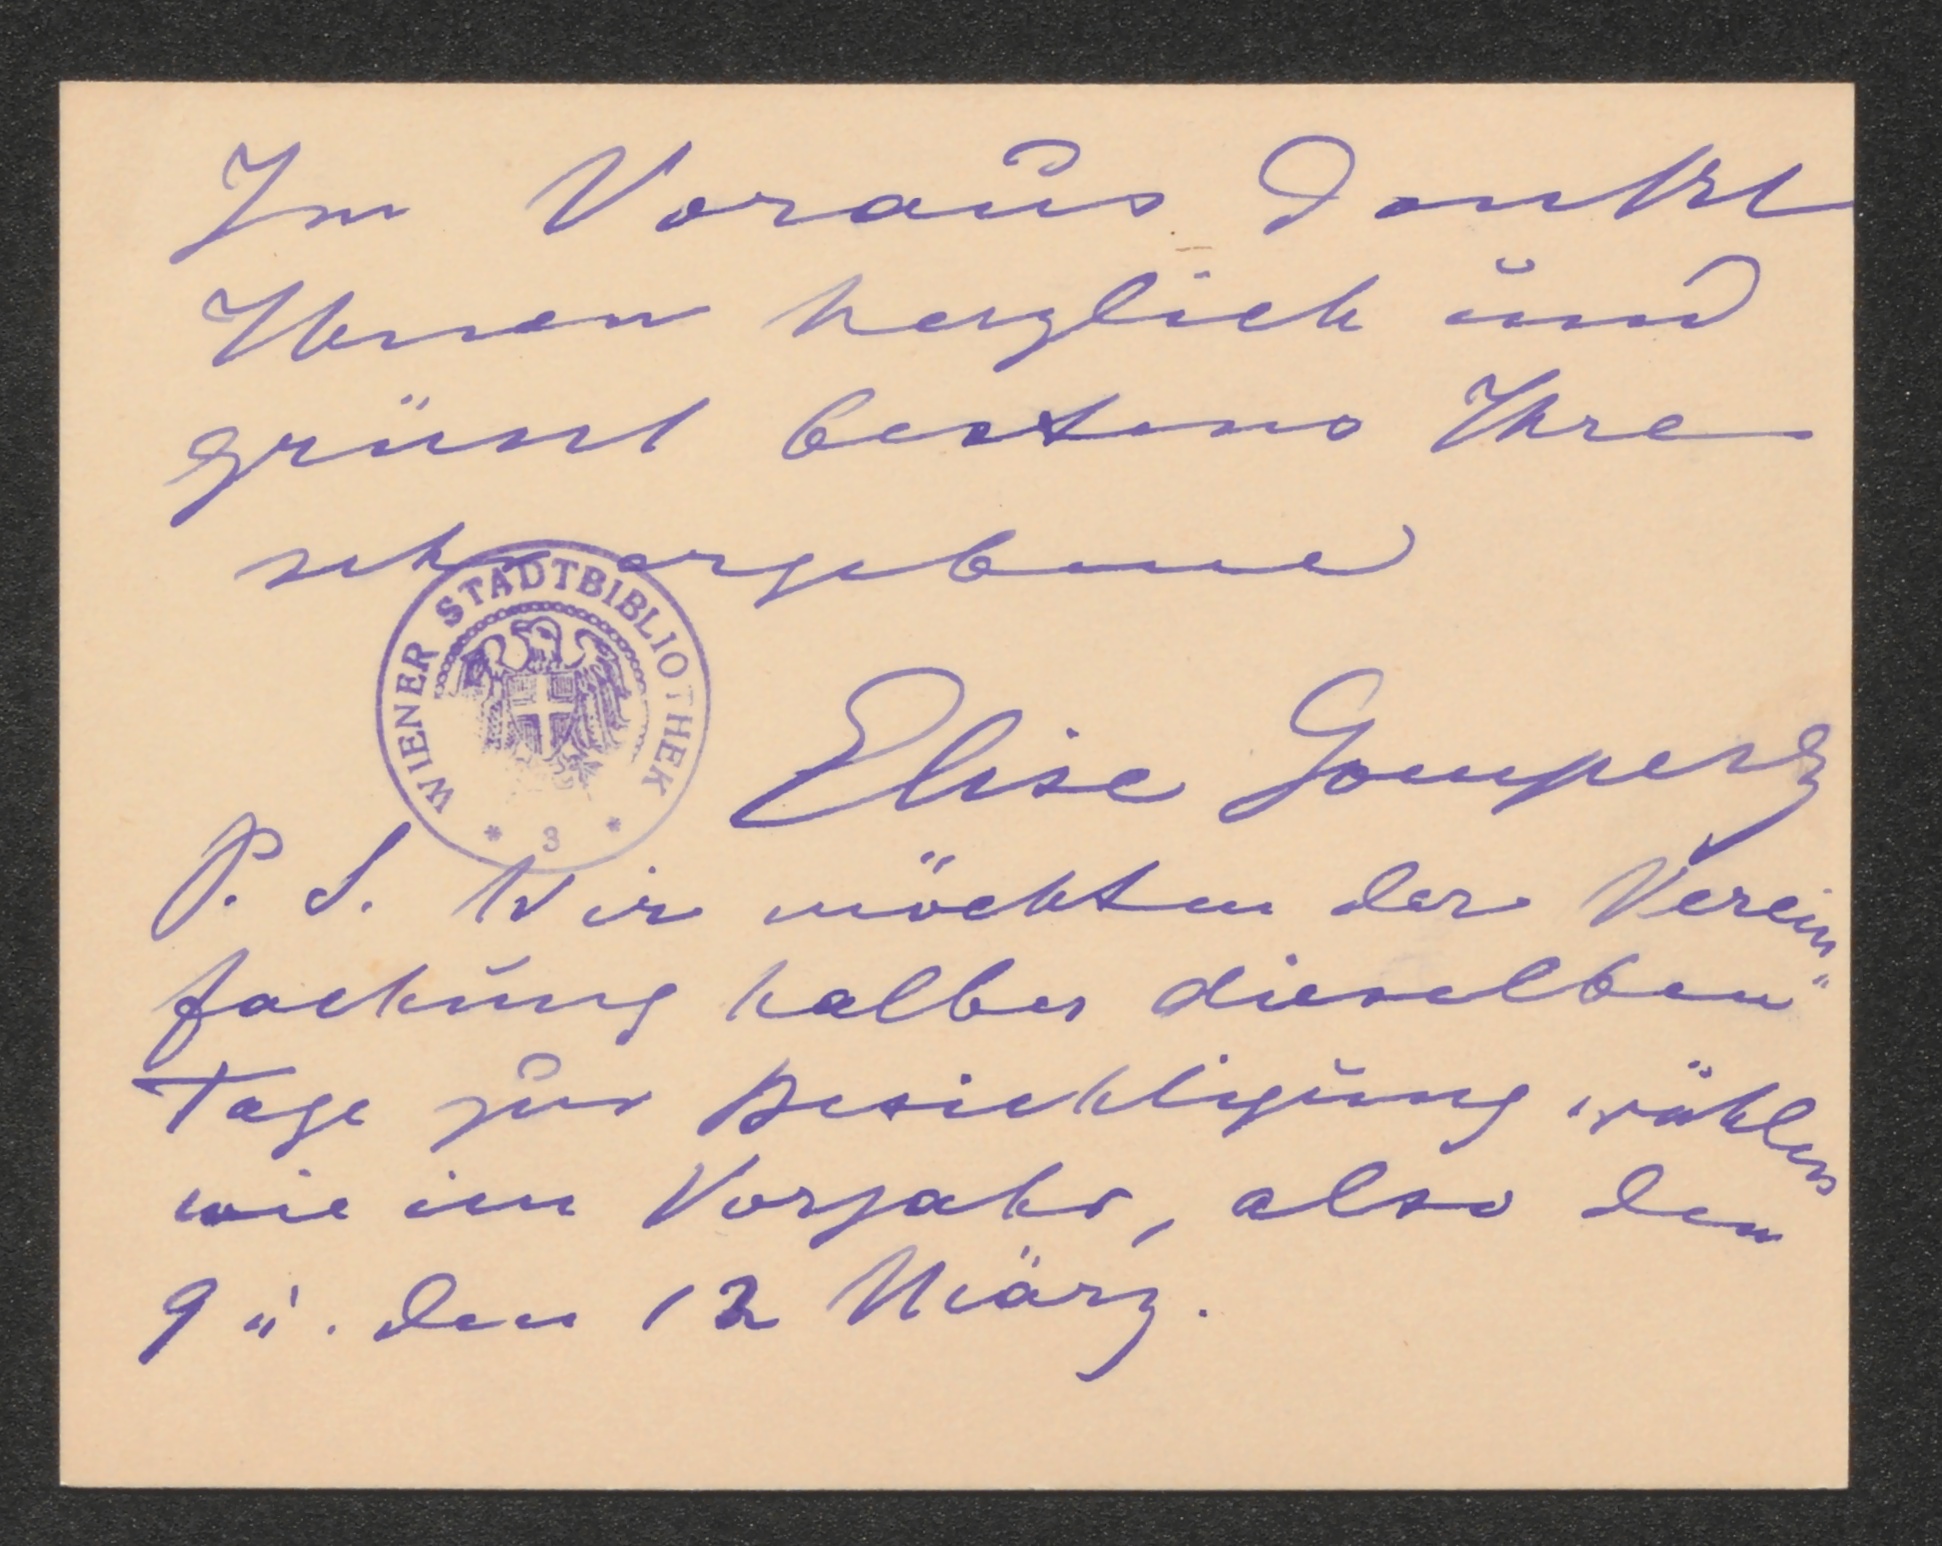 Im Voraus dankt
Ihnen herzlich und
grüsst bestens Ihre
sehr ergebene
WIENER STADTBIBLIOTHEK
* 3 *
Elise Gomperz
P. S. Wir möchten der Verein"
fachung halber dieselben
Tage zur Besichtigung wählen
wie im Vorjahr, also den
9 u. den 12 März.